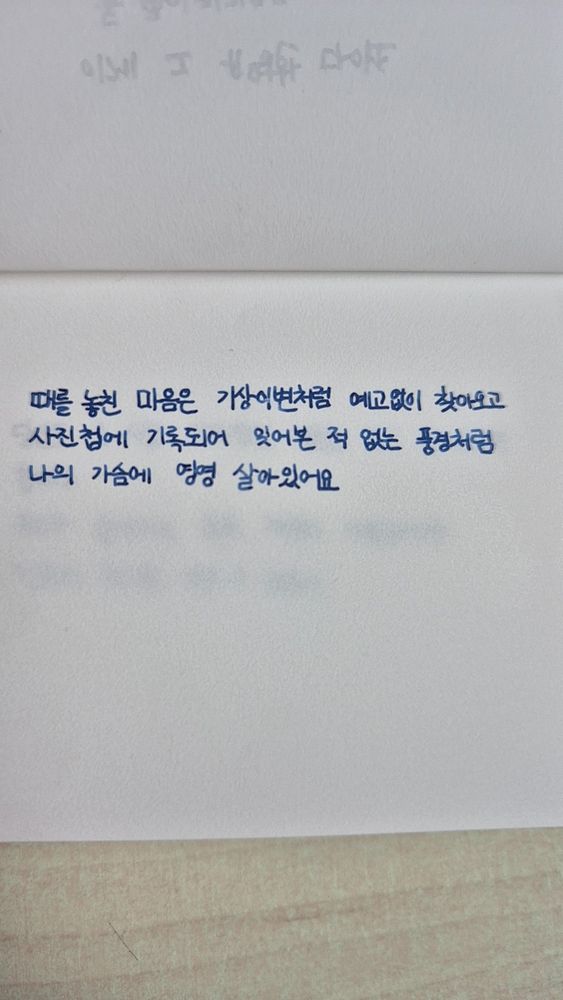 때를 놓친 마음은 기상이변처럼 예고없이 찾아오고
사진첩에 기록되어 잊어본 적 없는 풍경처럼
나의 가슴에 영영 살아있어요